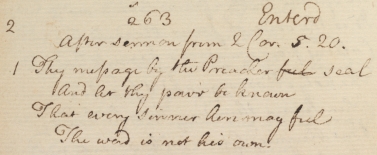 2 263 Enterd
After sermon from 2 Cor. 5. 20.
1 Thy message by the Preacher feel seal
And let thy pow'r be known
That every sinner here may feel
The word is not his own.